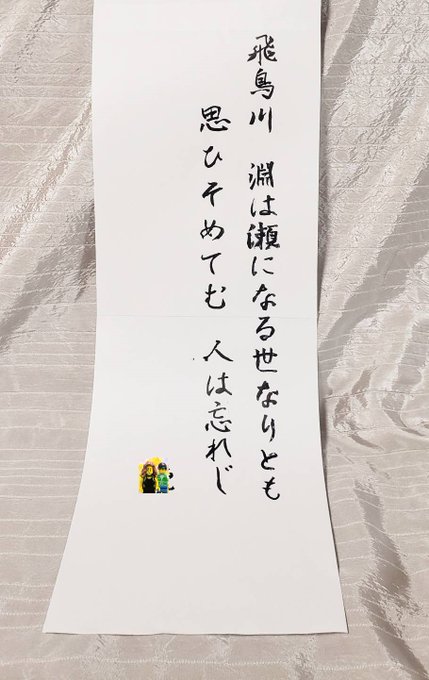 飛鳥川　淵は瀬になる世なりとも
思ひそめてむ　人は忘れじ